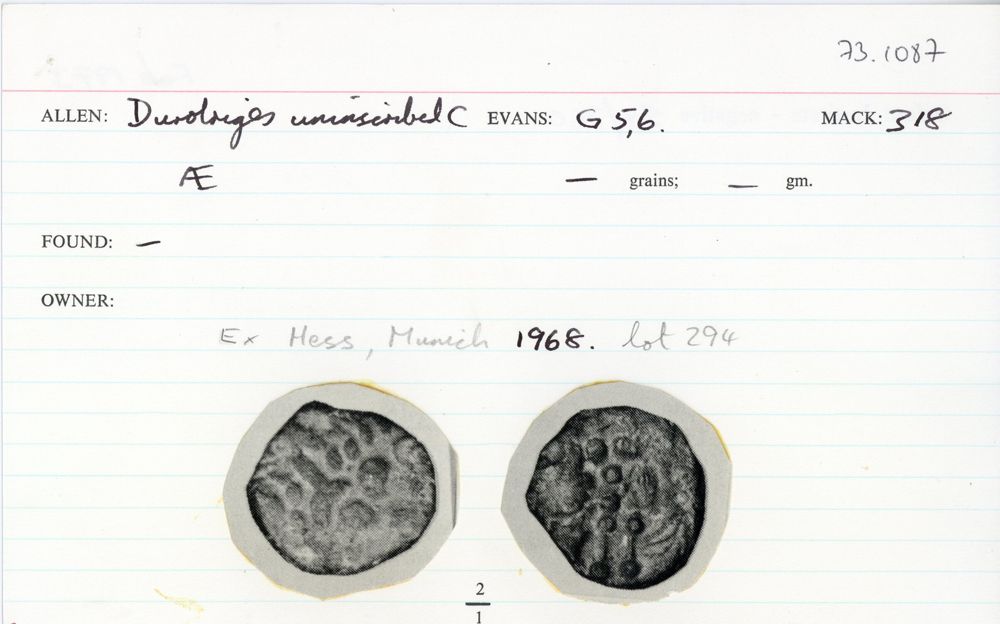 73.1087
ALLEN: Durotriges uninscribed C EVANS: G 5,6. MACK: 318
Æ — grains; — gm.
FOUND: —
OWNER:
Ex Hess, Munich 1968. lot 294
2
1